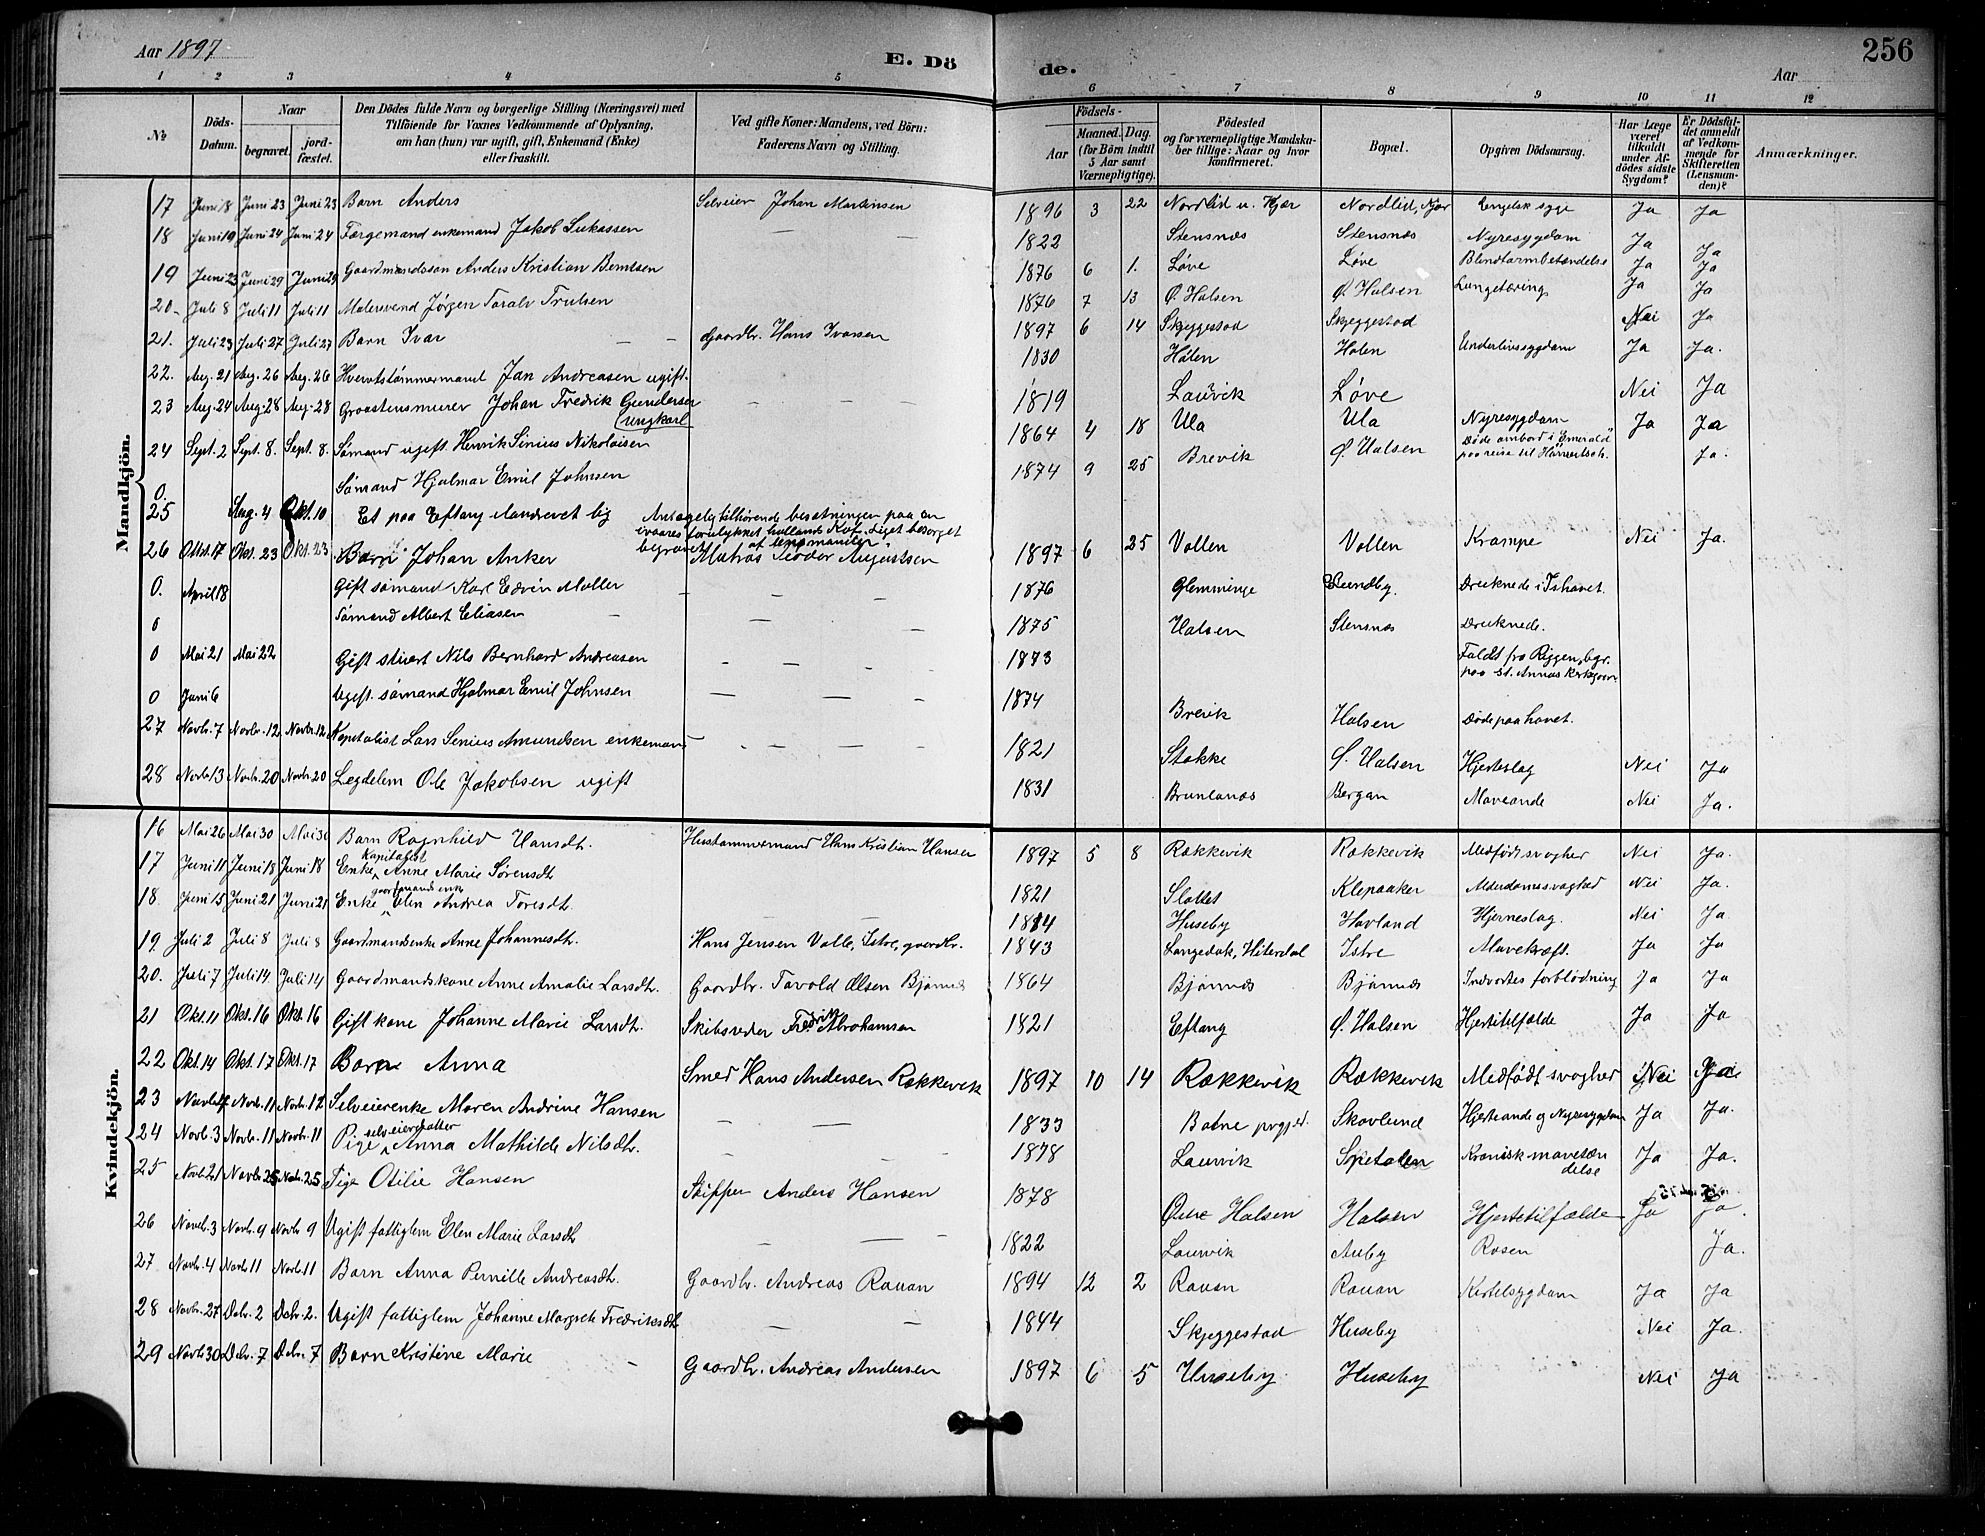 Aar 1897
E. Dö
de.
Aar
256
1 2 3 4 5 6 7 8 9 10 11 12
No
Döds-Datum.
Naar
begravet. jordfæstet.
Den Dödes fulde Navn og borgerlige Stilling (Næringsvei) med Tilföiende for Voxnes Vedkommende af Oplysning, om han (hun) var ugift, gift, Enkemand (Enke) eller fraskilt.
Ved gifte Koner: Mandens, ved Börn: Faderens Navn og Stilling.
Födsels-
Aar Maaned. Dag. (for Börn indtil 5 Aar samt Værnepligtige).
Födested og for værnepligtige Mandskaber tillige: Naar og hvor konfirmeret.
Bopæl.
Opgiven Dödsaarsag.
Har Læge været tilkaldt under Afdödes sidste Sygdom?
Er Dödsfaldet anmeldt af Vedkommende for Skifteretten (Lensmanden)?
Anmærkninger.
Mandkjön.
17 Juni 18 Juni 23 Juni 23 Barn Anders Selveier Johan Martinsen 1896 3 22 Nordlid u. Kjær Nordlid, Kjær Engelsk syge Ja Ja
18 Juni 19 Juni 24 Juni 24 Færgemand enkemand Jakob Lukassen — — 1822 Stensnæs Stensnæs Nyresygdom Ja Ja
19 Juni 23 Juni 29 Juni 29 Gaardmandssøn Anders Kristian Berntsen 1876 6 1. Løve Løve Blindtarmbetændelse Ja Ja
20. Juli 8 Juli 11 Juli 11 Malersvend Jørgen Taralv Trulsen 1876 7 13 Ø. Halsen Ø. Halsen Lungetæring Ja Ja
21. Juli 23 Juli 27 Juli 27 Barn Ivar — — Gaardbr. Hans Ivarsen 1897 6 14 Skjeggestad Skjeggestad Nei Ja
22. Aug. 21 Aug. 26 Aug. 26 Hvervtstømmermand Jan Andreasen ugift. 1830 Holen Holen Underlivssygdom Ja Ja.
23 Aug. 24 Aug. 28 Aug. 28 Graastensmurer Johan Fredrik Gundersen (ungkarl — — — 1819 Laurvik Løve Nei Ja
24 Sept. 2 Sept. 8. Sept. 8. Sømand ugift Henrik Sinius Nikolaisen 1864 4 18 Ula Ula Nyresygdom Ja Ja
0. Sømand Hjalmar Emil Johnsen 1874 9 25 Brevik Ø. Halsen Døde ombord i "Emerald" paa reise til Ja.
25 Aug. 4 Okt. 10 Et paa Eftang ilandrevet lig Antagelig tilhørende besætningen paa en ivaares forulykket hollandsk Kuf. Liget besørget begravet af lensmanden.
26 Oktbr. 17 Okt. 23 Okt. 23 Barn Johan Anker Matros Teodor Augustsen 1897 6 25 Vollen Vollen Krampe Nei Ja.
0. April 18 Gift sømand Karl Edvin Møller — — — 1876 Glemminge Lundby. Druknede i Ishavet.
0 Sømand Albert Eliasen — — — 1875 Halsen Stensnæs Druknede.
0 Mai 21 Mai 22 Gift stuert Nils Bernhard Andreasen — — — — 1873 Faldt fra Riggen, bgr. paa St. Annas Kirkegaard
0 Juni 6 Ugift. sømand Hjalmar Emil Johnsen — — — 1874 Brevik Halsen Døde paa havet.
27 Novbr. 7 Novbr. 12 Novbr. 12 Kapitalist Lars Senius Amundsen enkemand — — — — 1821 Stokke Ø. Halsen Hjerteslag Nei Ja
28 Novbr 13 Novbr. 20 Novbr. 20 Legdelem Ole Jakobsen ugift 1831 Brunlanæs Bergan Maveonde Nei Ja.
Kvindekjön.
16 Mai 26 Mai 30 Mai 30 Barn Ragnhild Hansdt. Hustømmermand Hans Kristian Hansen 1897 5 8 Rækkevik Rækkevik Medfødt svaghed Nei Ja.
17 Juni 11 Juni 18 Juni 18 Enke kapitalist Anne Marie Sørensdt 1821 Slottet Klepaaker Alderdomssvaghed Nei Ja.
18. Juni 15 Juni 21 Juni 21 Enke gaardmands enke Elen Andrea Toresdt. — — 1814 Huseby Havland Hjerneslag. Nei Ja
19 Juli 2 Juli 8 Juli 8 Gaardmandsenke Anne Johannesdt. Hans Jensen Valle, Istre, gaardbr. 1843 Langedok, Hiterdal Istre Mavekræft. Ja Ja
20. Juli 7 Juli 14 Juli 14 Gaardmandskone Anne Amalie Larsdt. Gaardbr. Tavold Olsen Bjønnes 1864 Bjønnes Bjønnes Indvortes forblødning Ja Ja
21 Okt. 11 Okt. 16 Okt. 16 Gift kone Johanne Marie Larsdt. Skibsreder Fredrik Abrahamsen 1821 Eftang Ø. Halsen Hjertetilfælde Ja Ja
22 Okt. 14 Okt. 17 Okt. 17 Barn Anna Smed Hans Andersen Rækkevik 1897 10 14 Rækkevik Rækkevik Medfødt svaghed Nei Ja
23 Novbr. Novbr. 11 Novbr. 12 Selveierenke Maren Andrine Hansen — — 1833 Botne prgjeld. Skovlund Hjerteonde og Nyresygdom Ja Ja.
24 Novb. 3 Novb. 11 Novb. 11 Pige selveierdatter Anna Mathilde Nilsdt. — — — 1878 Laurvik Spetalen Kronisk mavebetændelse Ja Ja.
25 Novb. 21 Novbr. 25 Novbr. 25 Pige Otilie Hansen Skipper Anders Hansen 1878 Østre Halsen Halsen Hjertetilfælde Ja Ja.
26 Novb. 3 Novbr. 9 Novbr 9 Ugift fattiglem Elen Marie Larsdt — — — 1822 Laurvik Auby Rosen Ja.
27 Novbr. 4 Novbr 11 Novbr. 11 Barn Anna Pernille Andreasdt. Gaardbr. Andreas Rauan 1894 12 2 Rauan Rauan Kirtelsygdom Ja Ja
28 Novbr. 27 Debr. 2 Debr. 2. Ugift fattiglem Johanne Margrete Fredriksdt — — 1844 Skjeggestad Huseby Nei Ja.
29 Novbr 30 Debr. 7 Debr. 7 Barn Kristine Marie — Gaardbr. Andreas Andersen 1897 6 5 Huseby Huseby Nei Ja